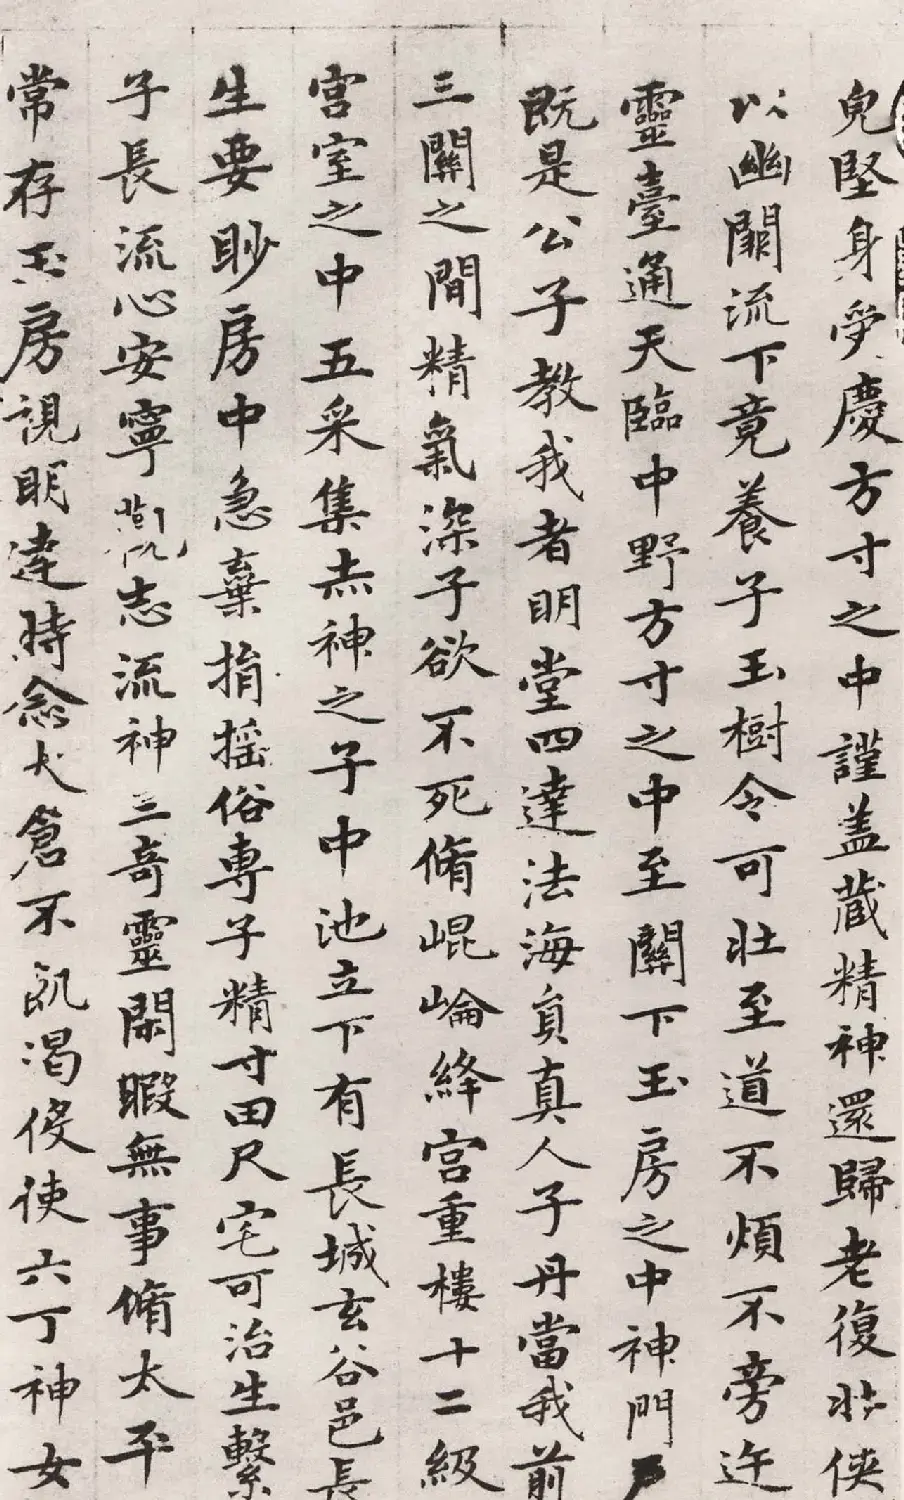 皃堅身受慶方寸之中謹盖蔵精神還歸老復壯俠
以幽闕流下竟養子玉樹令可壯至道不煩不旁迕
靈臺通天臨中野方寸之中至關下玉房之中神門戶
既是公子教我者明堂四達法海員真人子丹當我前
三關之間精氣深子欲不死脩崐崘絳宮重樓十二級
宮室之中五采集赤神之子中池立下有長城玄谷邑長
生要眇房中急棄捐搖俗專子精寸田尺宅可治生繫
子長流心安寧志流神三奇靈閑暇無事脩太平
常存玉房視明達時念大倉不飢渴役使六丁神女